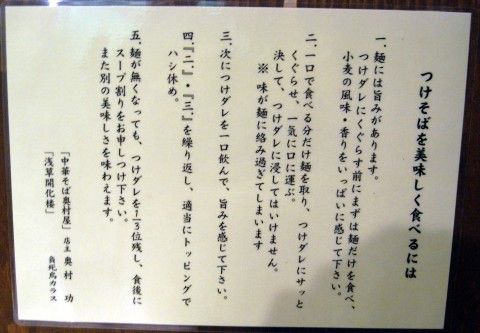 つけそばを美味しく食べるには
一、麺には旨みがあります。
つけダレにくぐらす前にまずは麺だけを食べ、
小麦の風味・香りをいっぱいに感じて下さい。
二、一口で食べる分だけ麺を取り、つけダレにサッと
くぐらせ、一気に口に運ぶ。
決して、つけダレに浸してはいけません。
※ 味が麺に絡み過ぎてしまいます
三、次につけダレを一口飲んで、旨みを感じて下さい。
四、『二、』・『三、』を繰り返し、適当にトッピングで
ハシ休め。
五、麺が無くなっても、つけダレを1/3位残し、食後に
スープ割りをお申しつけ下さい。
また別の美味しさを味わえます。
「中華そば奥村屋」店主 奥村 功
「浅草開化楼」 負死鳥カラス